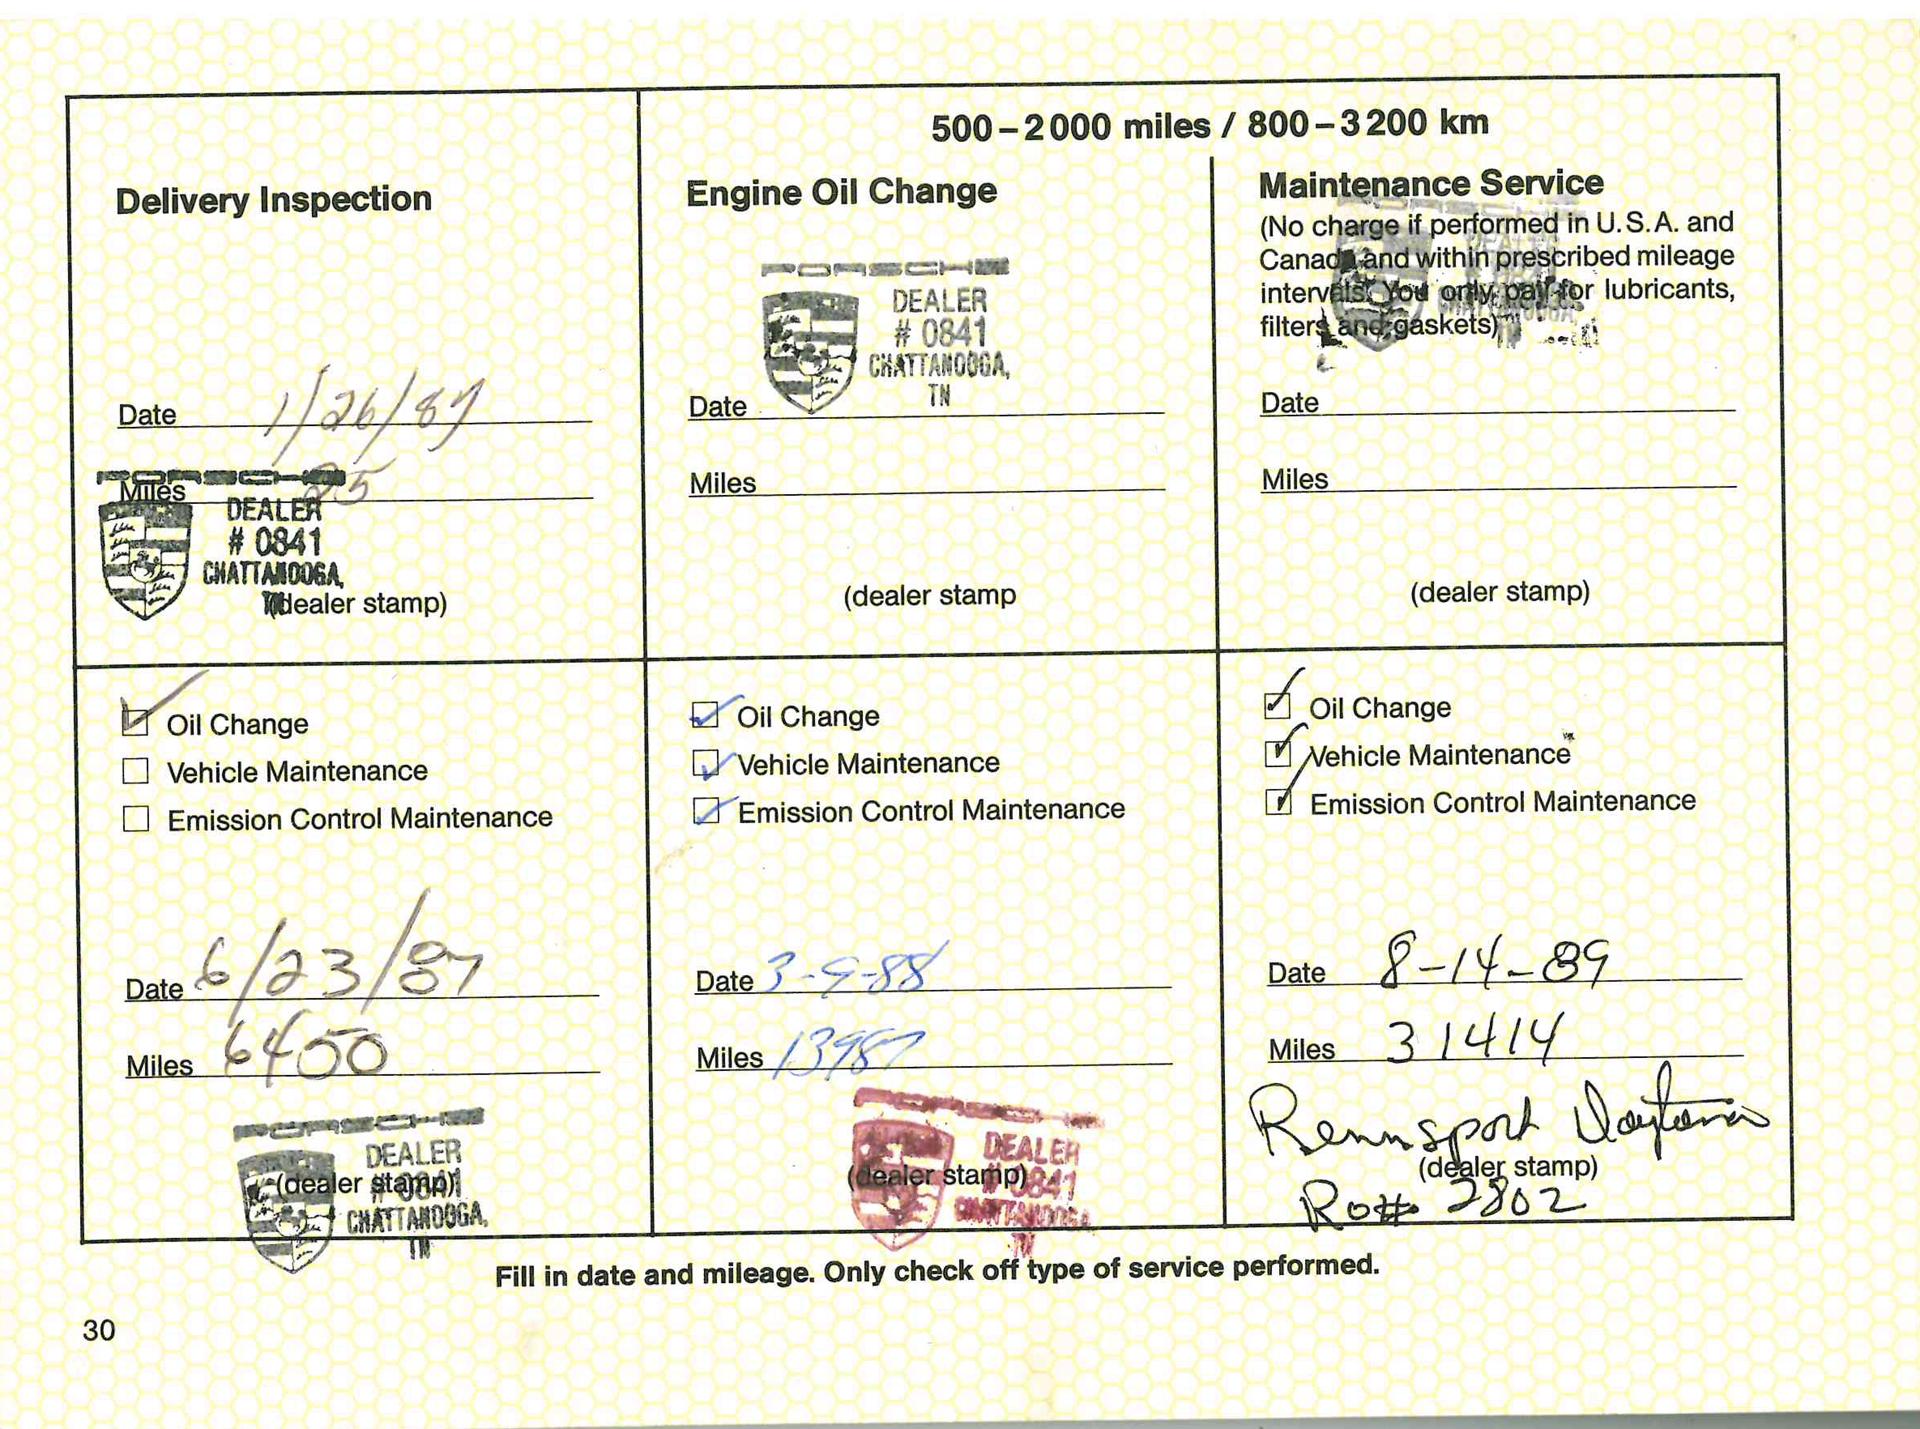 500–2000 miles / 800–3200 km
Delivery Inspection
Date 1/26/87
Miles 25
PORSCHE
DEALER
# 0841
CHATTANOOGA,
TN
(dealer stamp)
Engine Oil Change
PORSCHE
DEALER
# 0841
CHATTANOOGA,
TN
Date
Miles
(dealer stamp
Maintenance Service
(No charge if performed in U.S.A. and
Canada and within prescribed mileage
intervals. You only pay for lubricants,
filters and gaskets)
Date
Miles
(dealer stamp)
Oil Change
Vehicle Maintenance
Emission Control Maintenance
Date 6/23/87
Miles 6400
PORSCHE
DEALER
# 0841
CHATTANOOGA,
TN
(dealer stamp)
Oil Change
Vehicle Maintenance
Emission Control Maintenance
Date 3-9-88
Miles 13987
PORSCHE
DEALER
# 0841
CHATTANOOGA,
TN
(dealer stamp)
Oil Change
Vehicle Maintenance
Emission Control Maintenance
Date 8-14-89
Miles 31414
Rennsport Daytona
(dealer stamp)
Ro# 2802
Fill in date and mileage. Only check off type of service performed.
30